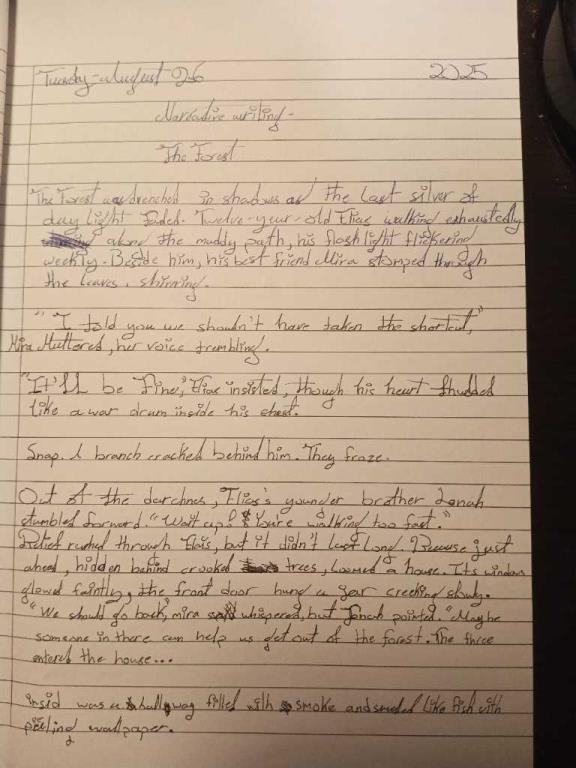 Tuesday-August 26 2025
Narrative writing-
The Forest
The Forest was drenched in shadows as the last silver of
day light faded. Twelve-year-old Elias walking exhaustedly
along the muddy path, his flashlight flickering
weekly. Beside him, his best friend Mira stomped through
the leaves.
"I told you we shouldn't have taken the shortcut,"
Mira Muttered, her voice trembling.
"It'll be fine," Elias insisted, though his heart thudded
like a war drum inside his chest.
Snap. A branch cracked behind him. They froze.
Out of the darchnes, Elias's younger brother Jonah
stumbled forward. "Wait up! You're walking too fast."
Relief rushed through Elais, but it didn't last long. Because just
ahead, hidden behind crooked trees, Loomed a house. Its windows
glowed faintly, the front door hung a jar creeking slowly.
"We should go back," mira whispered, but Jonah pointed. "Maybe
someone in there can help us get out of the forest. The three
entered the house...
insid was a hallway filled with smoke and smeled like fish with
peeling wallpaper.